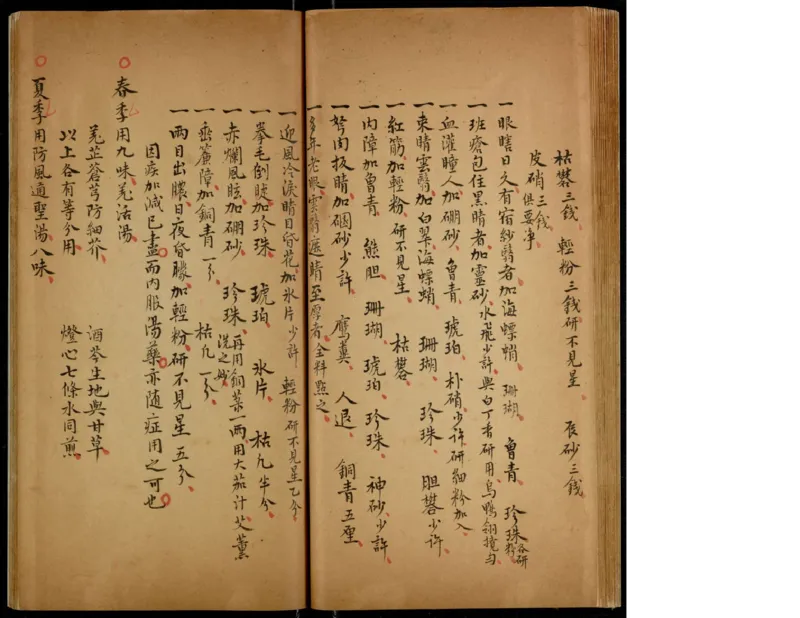 枯礬三錢 輕粉三錢研不見星 辰砂三錢
皮硝三錢俱要净
一眼瞎日久有宿紗翳者加海螵蛸 珊瑚 魯青 珍珠各研粉
一班瘡包住黑睛者加靈砂水飛少許與白丁香研用烏鴨翎攪勻
一血灌瞳人加硼砂 魯青 琥珀 朴硝少許研細粉加入
一束睛雲翳加白翠海螵蛸 珊瑚 珍珠 胆礬少許
一紅筋加輕粉研不見星 枯礬
一内障加魯青 熊胆 珊瑚 琥珀 珍珠 神砂少許
一胬肉扳睛加硇砂少許 鷹糞 人退 銅青五厘
一多年老眼雲翳遮睛至厚者全料點之
一迎風冷淚睛日昏花加氷片少許 輕粉研不見星乙分
一拳毛倒睫加珍珠 琥珀 氷片 枯九半分
一赤爛風眩加硼砂 珍珠 再用銅菉一两用大茄汁艾薰洗之妙
一垂簾障加銅青一分 枯九一分
一两日出膿日夜昏朦加輕粉研不見星五分
因疾加減已盡而内服湯藥亦随症用之可也
春季用九味羌活湯
羗芷蒼芎防細芥 酒芩生地與甘草
以上各有等分用 燈心七條水同煎
夏季用防風通聖湯八味